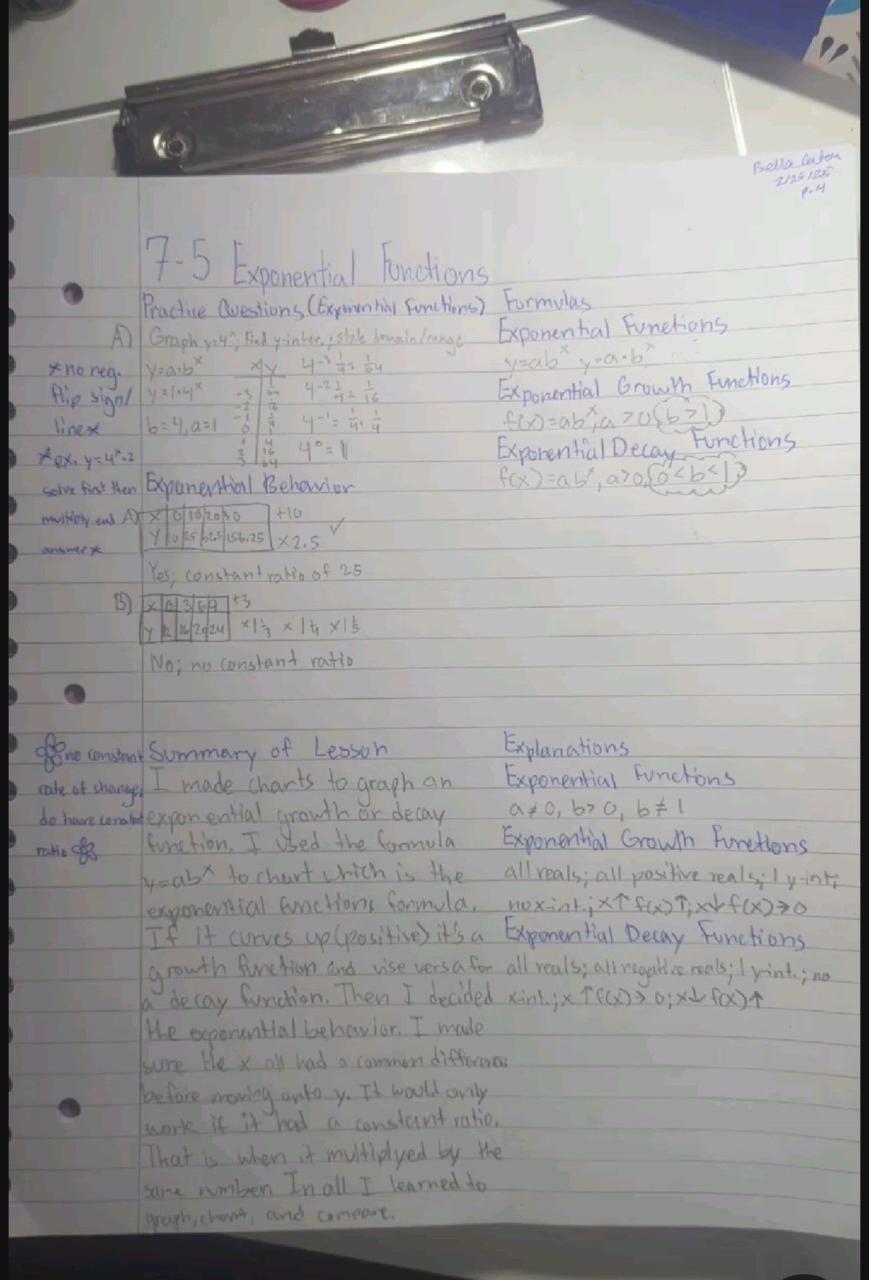 Bella
2/25/25
p.4
7-5 Exponential Functions
Practice Questions (Exponential Functions)
A) Graph y=4ˣ; Find y-inter.; state domain/range
y=a·bˣ
y=1·4ˣ
b=4, a=1
x y
-3 1/64
-2 1/16
-1 1/4
0 1
1 4
2 16
3 64
4⁻³ 1/4³ 1/64
4⁻² 1/4² 1/16
4⁻¹= 1/4¹ 1/4
4⁰= 1
*no neg.
flip sign/
line*
*ex. y=4ˣ·2
solve first then
multiply end
answer*
Formulas
Exponential Functions
y=abˣ y=a·bˣ
Exponential Growth Functions
f(x)=abˣ, a>0, b>1
Exponential Decay Functions
f(x)=abˣ, a>0, 0<b<1
Exponential Behavior
A) x 0 10 20 30 +10
y 10 25 62.5 156.25 ×2.5 ✓
Yes; constant ratio of 25
B) x 0 3 6 9 +3
y 12 16 20 24 ×1⅓ ×1¼ ×1⅕
No; no constant ratio
no constant
rate of change,
do have constant
ratio
Summary of Lesson
I made charts to graph an
exponential growth or decay
function. I used the formula
y=abˣ to chart which is the
exponential functions formula.
If it curves up (positive) it's a
growth function and vise versa for
a decay function. Then I decided
the exponential behavior. I made
sure the x all had a common difference
before moving onto y. It would only
work if it had a constant ratio.
That is when it multiplyed by the
same number. In all I learned to
graph, chart, and compare.
Explanations
Exponential Functions
a≠0, b>0, b≠1
Exponential Growth Functions
all reals; all positive reals; 1 y-int;
no x-int.; x↑ f(x)↑; x↓ f(x)→0
Exponential Decay Functions
all reals; all negative reals; 1 y-int.; no
x-int.; x↑ f(x)→0; x↓ f(x)↑